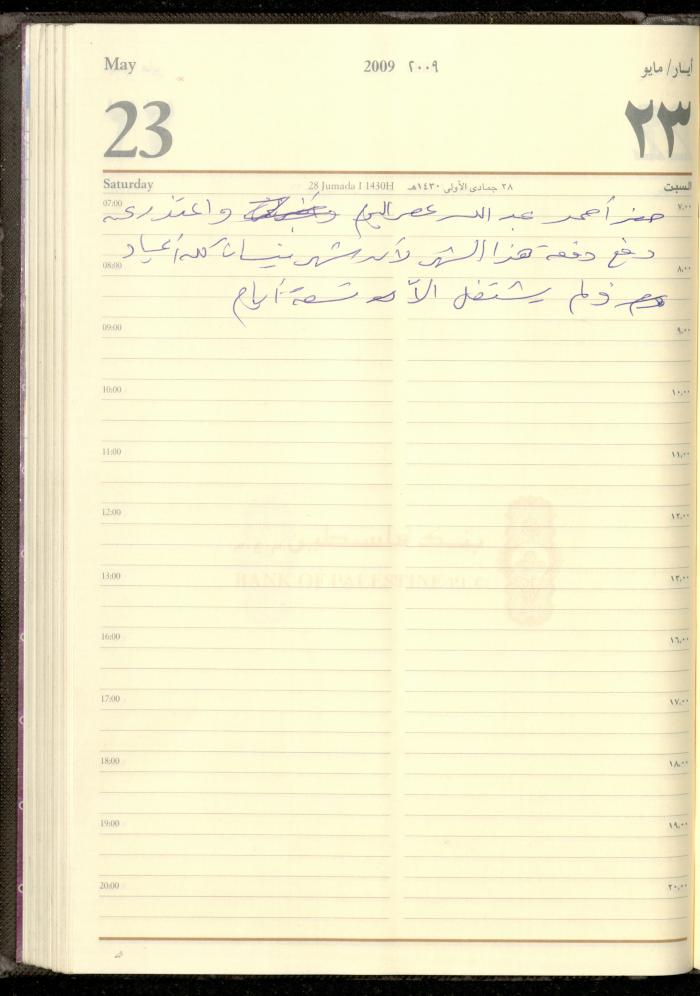 May 2009 ٢٠٠٩ أيار/ مايو
23 ٢٣
Saturday 28 Jumada I 1430H ٢٨ جمادى الأولى ١٤٣٠هـ السبت
07:00 حضر أحمد عبد الله عصر اليوم واعتذر عن ٧،٠٠
دفع دفعة هذا الشهر لأن شهر نيسان كله أعياد
08:00 ٨،٠٠
ولم يشتغل إلا تسعة أيام
09:00 ٩،٠٠
10:00 ١٠،٠٠
11:00 ١١،٠٠
12:00 ١٢،٠٠
بنك فلسطين م.ع.م
BANK OF PALESTINE PLC
13:00 ١٣،٠٠
16:00 ١٦،٠٠
17:00 ١٧،٠٠
18:00 ١٨،٠٠
19:00 ١٩،٠٠
20:00 ٢٠،٠٠